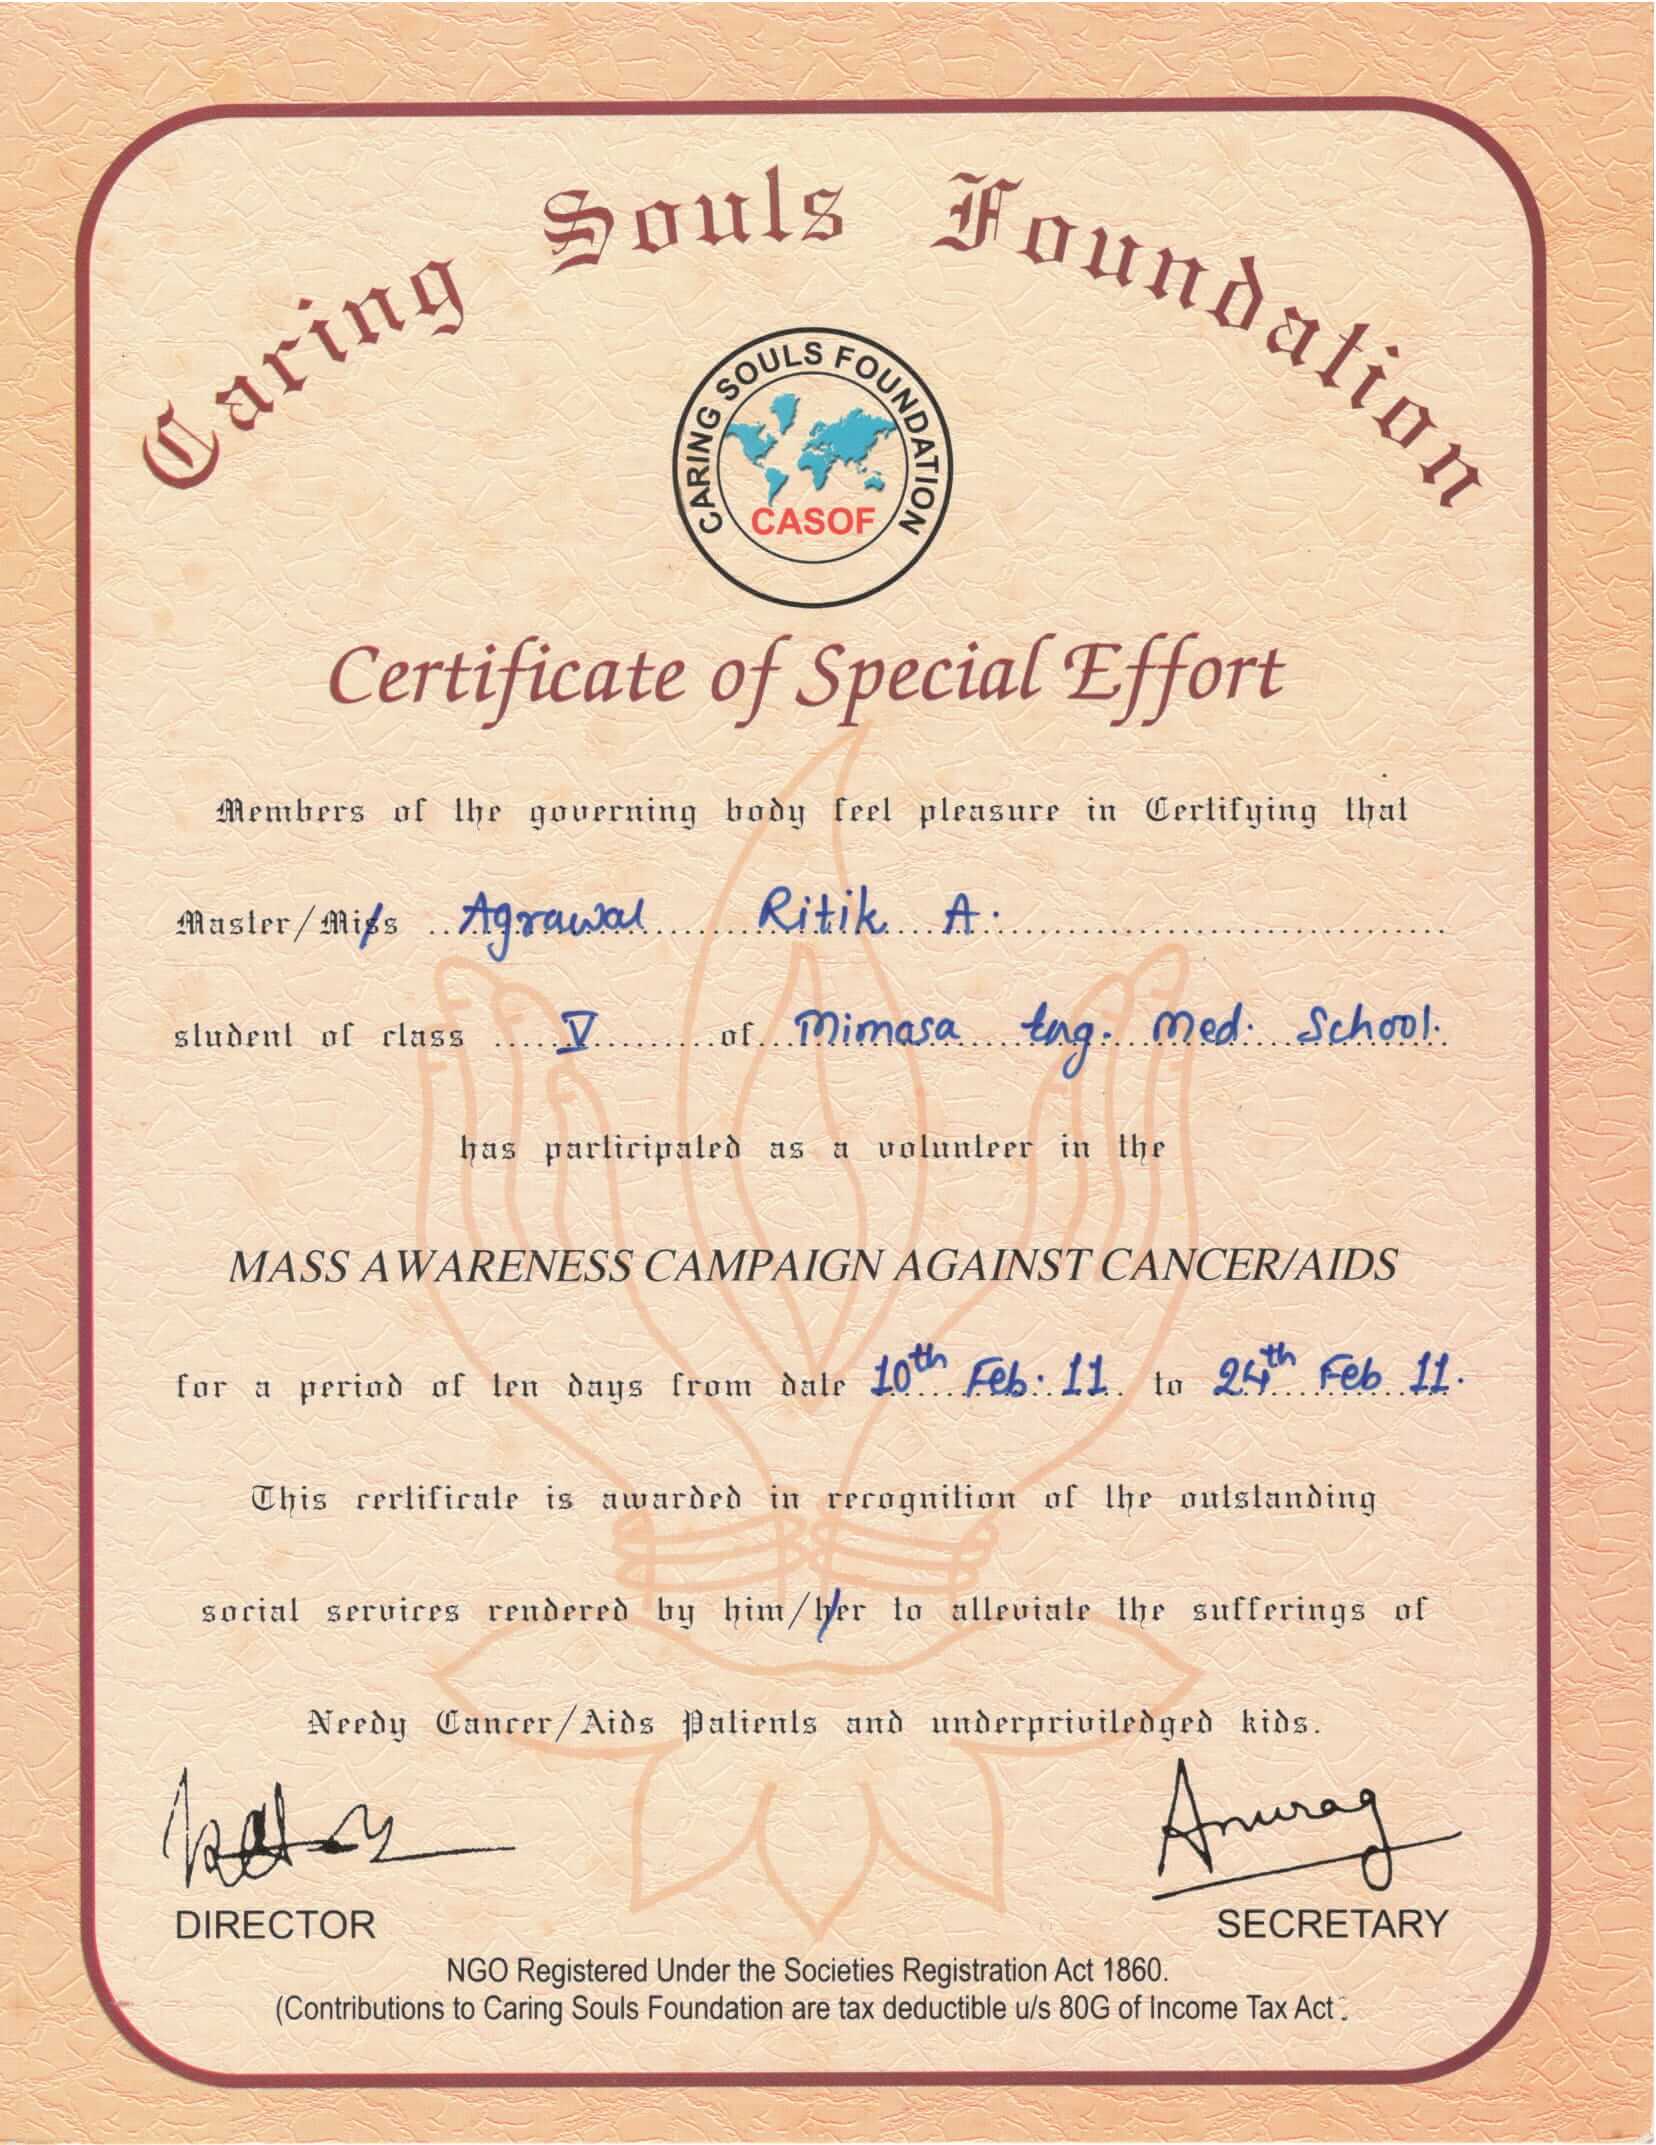 Caring Souls Foundation
CARING SOULS FOUNDATION
CASOF
Certificate of Special Effort
Members of the governing body feel pleasure in Certifying that
Master/Miss Agrawal Ritik A.
student of class V of Mimasa Eng. Med. School.
has participated as a volunteer in the
MASS AWARENESS CAMPAIGN AGAINST CANCER/AIDS
for a period of ten days from date 10th Feb. 11 to 24th Feb 11.
This certificate is awarded in recognition of the outstanding
social services rendered by him/her to alleviate the sufferings of
Needy Cancer/Aids Patients and underpriviledged kids.
Anurag
DIRECTOR
SECRETARY
NGO Registered Under the Societies Registration Act 1860.
(Contributions to Caring Souls Foundation are tax deductible u/s 80G of Income Tax Act